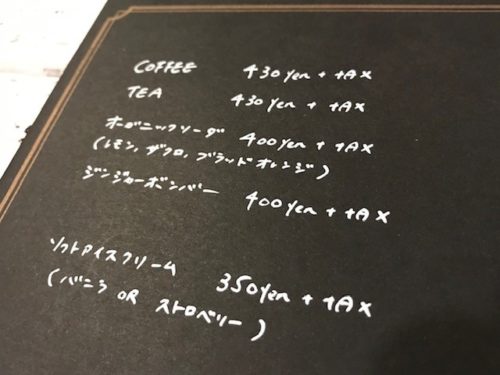 COFFEE 430yen + tAX
TEA 430yen + tAX
オーガニックソーダ 400yen + tAX
(レモン, ザクロ, ブラッドオレンジ)
ジンジャーボンバー 400yen + tAX
ソフトアイスクリーム 350yen + tAX
(バニラ OR ストロベリー)